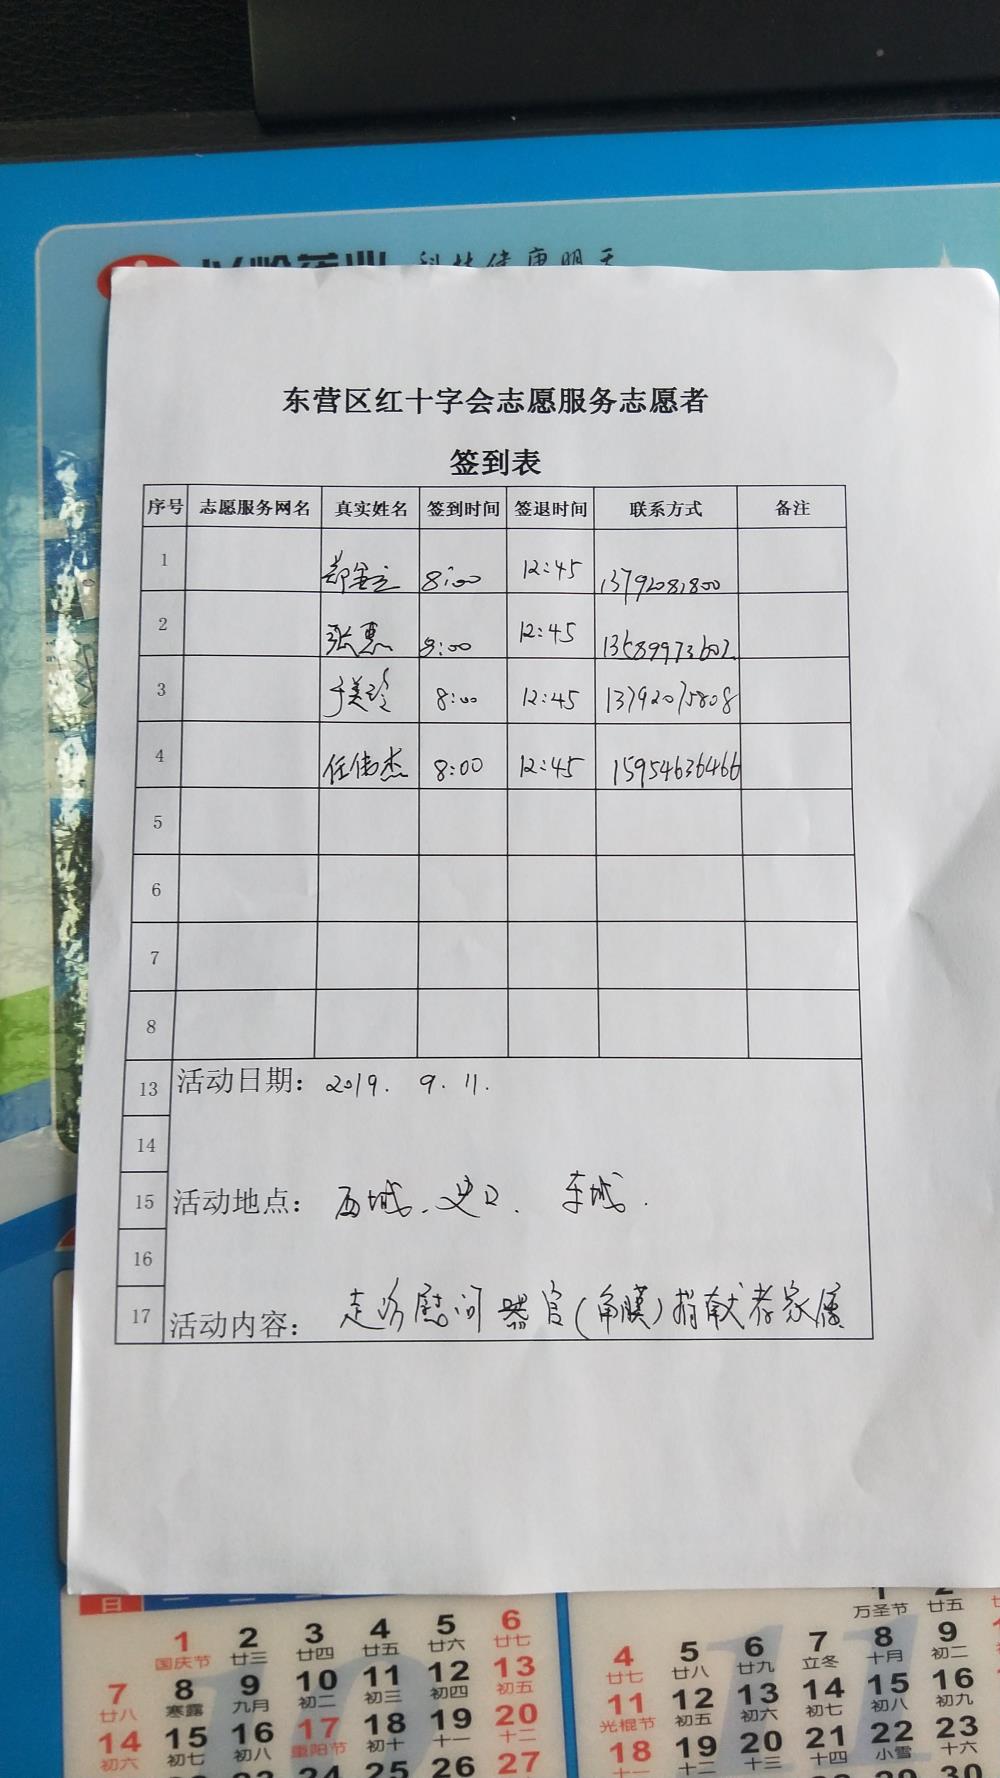 以岭药业 科技健康明天
东营区红十字会志愿服务志愿者
签到表
序号 志愿服务网名 真实姓名 签到时间 签退时间 联系方式 备注
1 郑金立 8:00 12:45 13792081800
2 张惠 8:00 12:45 13589973602
3 于美玲 8:00 12:45 13792075808
4 任伟杰 8:00 12:45 15954636466
5
6
7
8
13 活动日期： 2019. 9. 11.
14
15 活动地点： 西城、史口、东城.
16
17 活动内容： 走访慰问器官(角膜)捐献者家属
日 一 二
1 2 3 4 5 6
国庆节 廿三 廿四 廿五 廿六 廿七
7 8 9 10 11 12 13
廿八 寒露 九月 初二 初三 初四 初五
14 15 16 17 18 19 20
初六 初七 初八 重阳节 初十 十一 十二
27
1 2
万圣节 廿五
4 5 6 7 8 9
廿七 廿八 廿九 立冬 十月 初二
11 12 13 14 15 16
光棍节 初五 初六 初七 初八 初九
18 19 20 21 22 23
十一 十二 十三 十四 小雪 十六